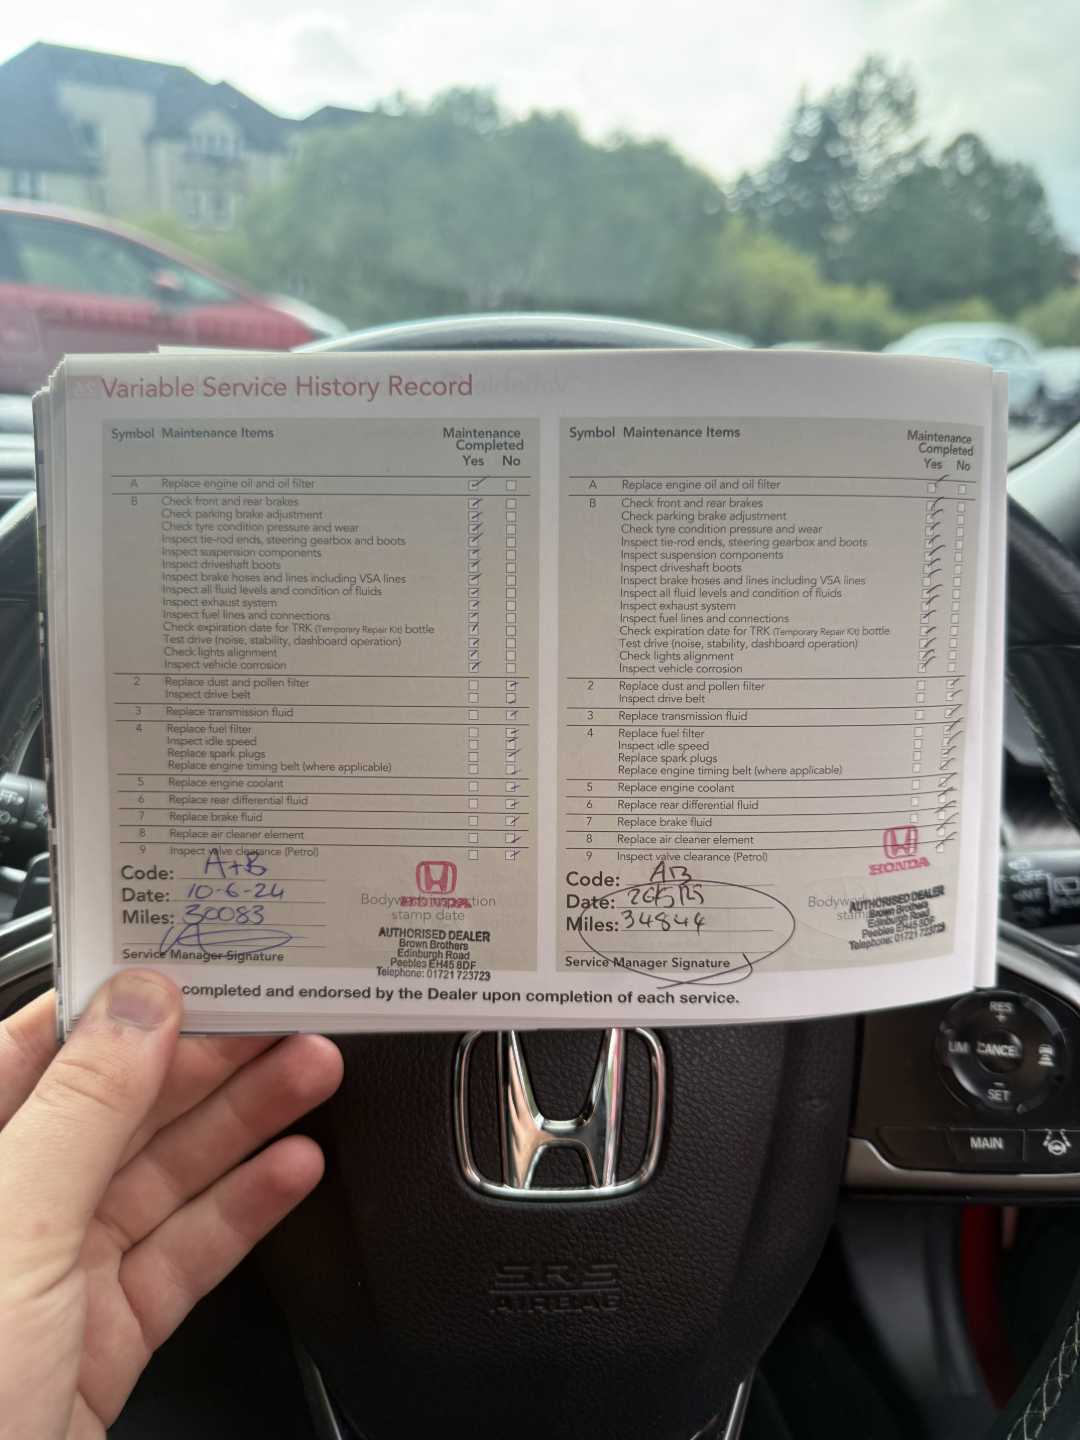 Variable Service History Record
Symbol Maintenance Items
Maintenance
Completed
Yes No
A Replace engine oil and oil filter
B Check front and rear brakes
Check parking brake adjustment
Check tyre condition pressure and wear
Inspect tie-rod ends, steering gearbox and boots
Inspect suspension components
Inspect driveshaft boots
Inspect brake hoses and lines including VSA lines
Inspect all fluid levels and condition of fluids
Inspect exhaust system
Inspect fuel lines and connections
Check expiration date for TRK (Temporary Repair Kit) bottle
Test drive (noise, stability, dashboard operation)
Check lights alignment
Inspect vehicle corrosion
2 Replace dust and pollen filter
Inspect drive belt
3 Replace transmission fluid
4 Replace fuel filter
Inspect idle speed
Replace spark plugs
Replace engine timing belt (where applicable)
5 Replace engine coolant
6 Replace rear differential fluid
7 Replace brake fluid
8 Replace air cleaner element
9 Inspect valve clearance (Petrol)
Code: A+B
Date: 10-6-24
Miles: 30083
Service Manager Signature
Bodywork inspection
stamp date
HONDA
AUTHORISED DEALER
Brown Brothers
Edinburgh Road
Peebles EH45 8DF
Telephone: 01721 723723
Symbol Maintenance Items
Maintenance
Completed
Yes No
A Replace engine oil and oil filter
B Check front and rear brakes
Check parking brake adjustment
Check tyre condition pressure and wear
Inspect tie-rod ends, steering gearbox and boots
Inspect suspension components
Inspect driveshaft boots
Inspect brake hoses and lines including VSA lines
Inspect all fluid levels and condition of fluids
Inspect exhaust system
Inspect fuel lines and connections
Check expiration date for TRK (Temporary Repair Kit) bottle
Test drive (noise, stability, dashboard operation)
Check lights alignment
Inspect vehicle corrosion
2 Replace dust and pollen filter
Inspect drive belt
3 Replace transmission fluid
4 Replace fuel filter
Inspect idle speed
Replace spark plugs
Replace engine timing belt (where applicable)
5 Replace engine coolant
6 Replace rear differential fluid
7 Replace brake fluid
8 Replace air cleaner element
9 Inspect valve clearance (Petrol)
Code: AB
Date:
Miles: 34844
Service Manager Signature
HONDA
AUTHORISED DEALER
Brown Brothers
Edinburgh Road
Peebles EH45 8DF
Telephone: 01721 723723
completed and endorsed by the Dealer upon completion of each service.
RES
+
LIM CANCEL
−
SET
MAIN
SRS
AIRBAG